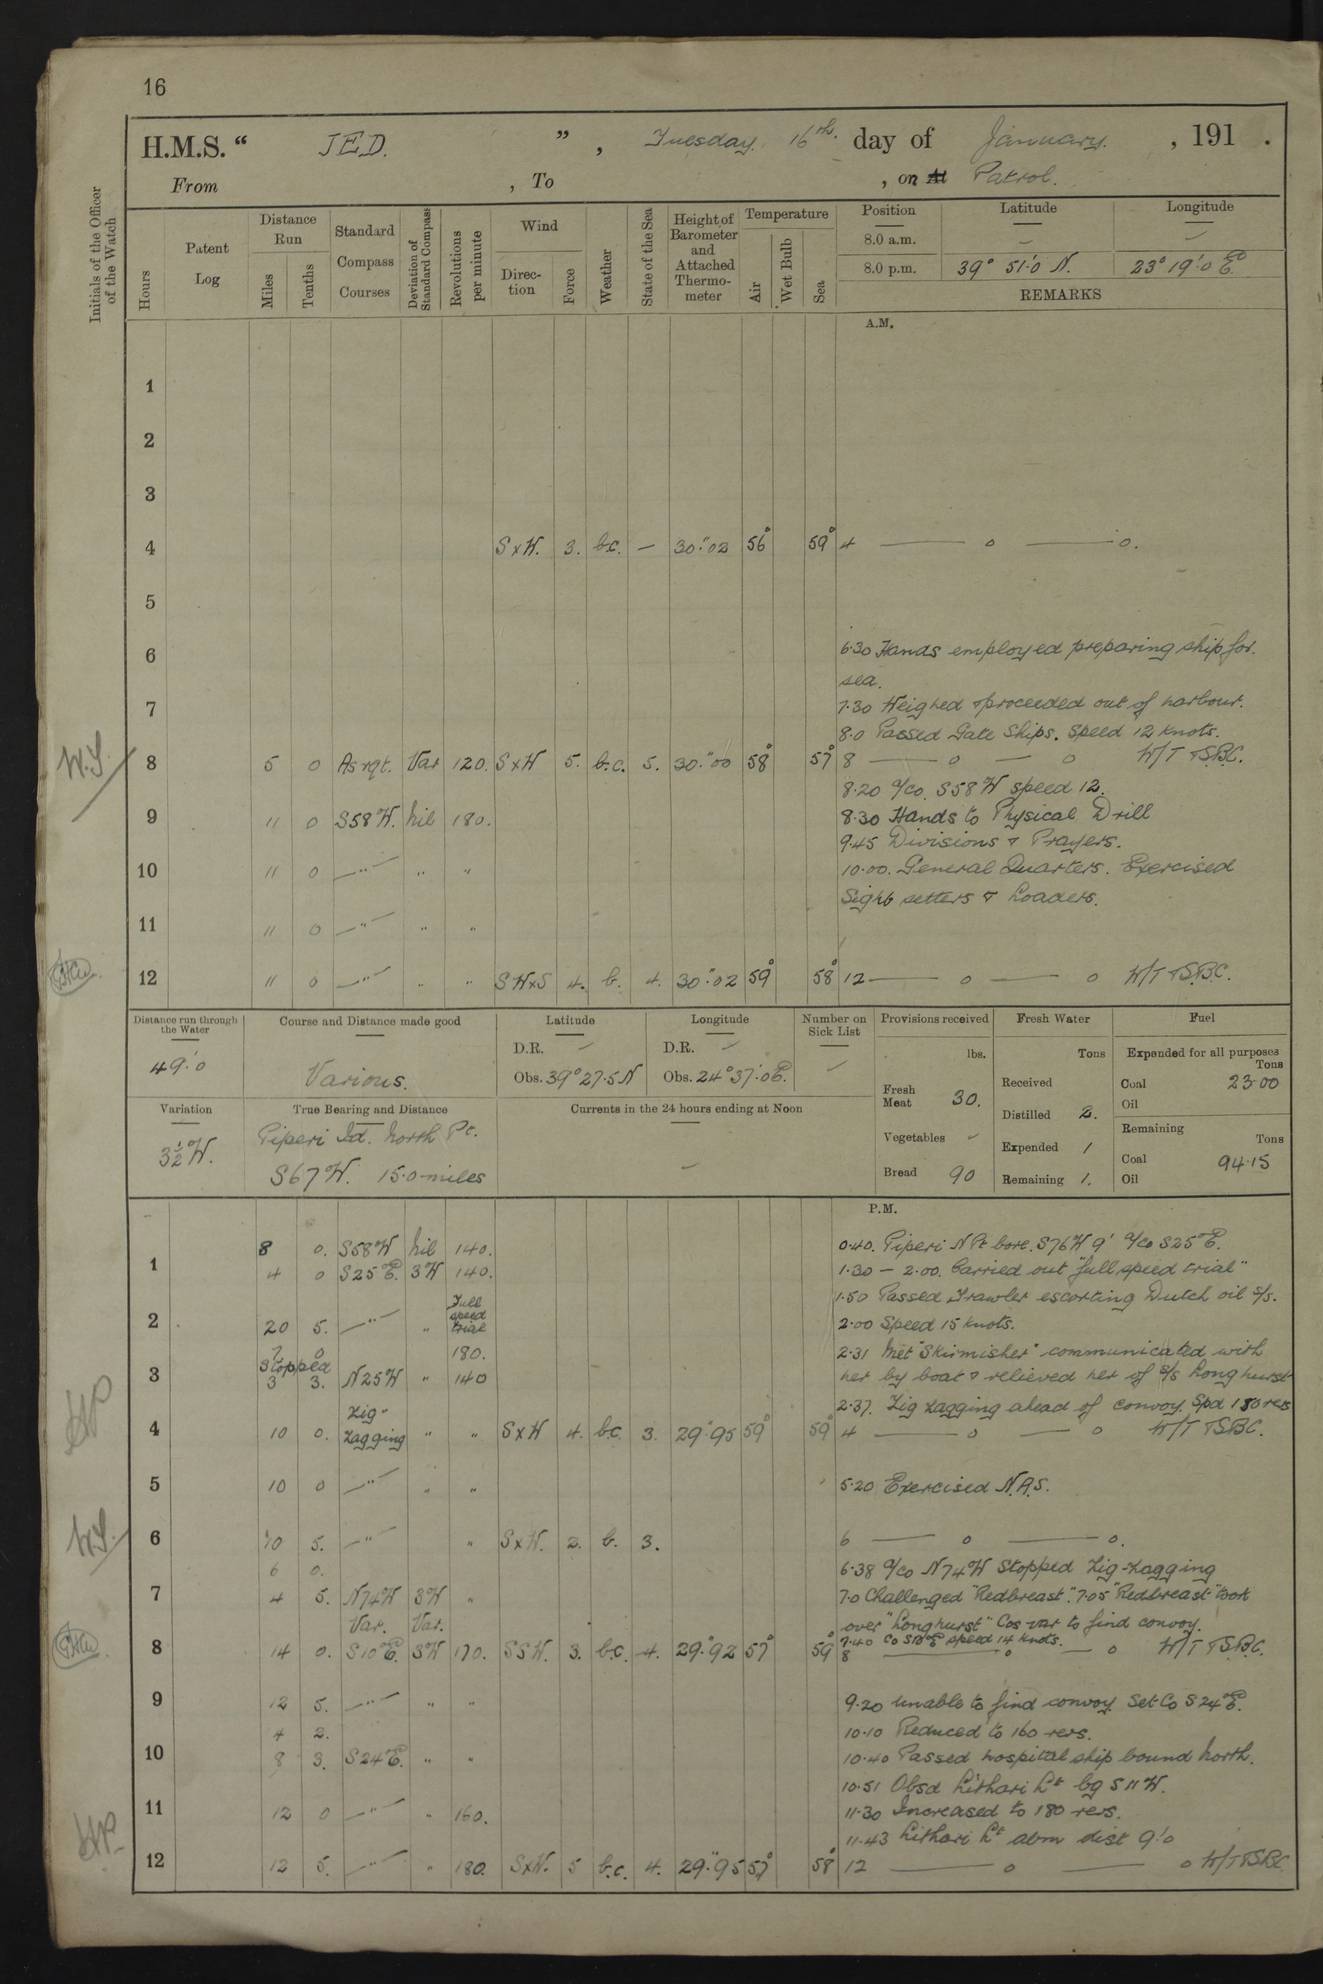 16
H.M.S. “ JED. ” , Tuesday 16th. day of January. , 191 .
From , To , on At Patrol.
Initials of the Officer of the Watch
Hours
Patent Log
Distance Run
Miles
Tenths
Standard Compass Courses
Deviation of Standard Compass
Revolutions per minute
Wind
Direction
Force
Weather
State of the Sea
Height of Barometer and Attached Thermometer
Temperature
Air
Wet Bulb
Sea
Position Latitude Longitude
8.0 a.m. – –
8.0 p.m. 39° 51'.0 N. 23° 19'.0 E.
REMARKS
A.M.
1
2
3
4 S x W. 3. b.c. – 30".02 56° 59° 4 —— o —— o.
5
6
6.30 Hands employed preparing ship for.
sea.
7
7.30 Weighed & proceeded out of harbour.
8.0 Passed Gate Ships. Speed 12 knots.
W.S. 8 5 0 As rqt. Var 120. S x W 5. b.c. 5. 30".00 58° 57° 8 —— o — o W/T TSBC.
8.20 a/co. S58°W speed 12.
9 11 0 S58°W. Nil 180. 8.30 Hands to Physical Drill
9.45 Divisions & Prayers.
10 11 0 —"— " " 10.00. General Quarters. Exercised
Sight setters & Loaders.
11 11 0 —"— " "
12 11 0 —"— " " SWxS 4. b. 4. 30".02 59° 58° 12 —— o —— o W/T TSBC.
Distance run through the Water
49'.0
Course and Distance made good
Various.
Latitude
D.R. –
Obs. 39° 27.5 N
Longitude
D.R. –
Obs. 24° 37'.0 E.
Number on Sick List
–
Provisions received
lbs.
Fresh Meat 30.
Vegetables –
Bread 90
Fresh Water
Tons
Received
Distilled 2.
Expended 1
Remaining 1.
Fuel
Expended for all purposes
Tons
Coal 23.00
Oil
Remaining
Tons
Coal 94.15
Oil
Variation
3½°W.
True Bearing and Distance
Piperi Id. North Pt.
S67°W. 15.0 miles
Currents in the 24 hours ending at Noon
–
P.M.
8 0. S58°W Nil 140. 0.40. Piperi N Pt bore. S76°W 9' a/co S25°E.
1 4 0 S25°E. 3°W 140. 1.30 – 2.00. Carried out "full speed trial"
1.50 Passed Trawler escorting Dutch oil S/S.
2 20 5. —"— " Full speed trial 2.00 Speed 15 knots.
7 0 180. 2.31 Met "Skirmisher" communicated with
Stopped
3 3 3. N25°W " 140 her by boat & relieved her of S/S Longhurst
2.37. Zig zagging ahead of convoy. Spd 180 revs
4 10 0. Zig-zagging " " SxW 4. b.c. 3. 29".95 59° 59° 4 —— o —— o W/T TSBC.
5 10 0 —"— " " 5.20 Exercised N.A.S.
W.S. 6 10 5. —"— " SxW. 2. b. 3. 6 —— o —— o.
6 0. 6.38 a/co N74°W Stopped Zig-zagging
7 4 5. N74°W 3°W " 7.0 Challenged "Redbreast". 7.05 "Redbreast" took
Var. Var. over "Longhurst" Cos var to find convoy.
7.40 Co S10°E speed 14 knots.
8 14 0. S10°E. 3°W 170. SSW. 3. b.c. 4. 29".92 57° 59° 8 —— o — o W/T TSBC.
9 12 5. —"— " " 9.20 Unable to find convoy. Set Co S24°E.
4 2. 10.10 Reduced to 160 revs.
10 8 3. S24°E. " " 10.40 Passed hospital ship bound North.
10.51 Obsd Lithari Lt bg S11°W.
11 12 0 —"— " 160. 11.30 Increased to 180 revs.
11.43 Lithari Lt abm dist 9'.0
12 12 5. —"— " 180. SxW. 5 b.c. 4. 29".95 57° 58° 12 —— o —— o W/T TSBC